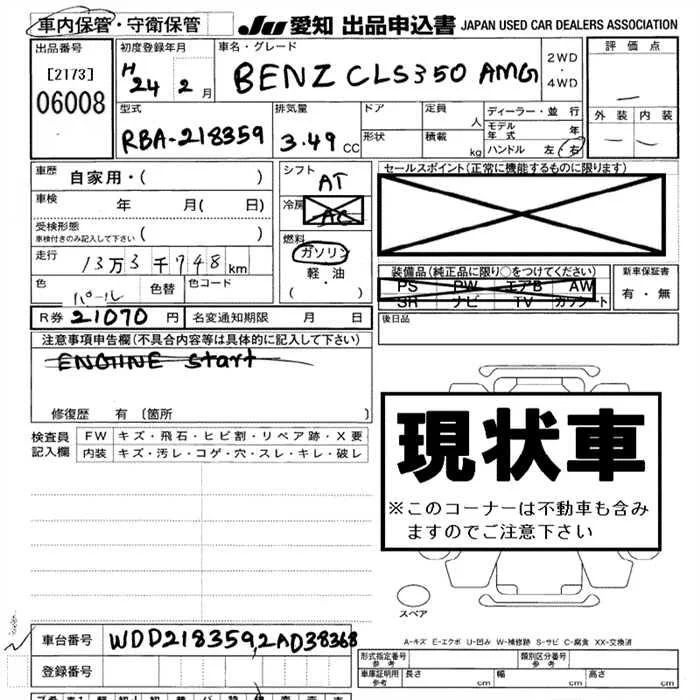 車内保管・守衛保管 JU 愛知 出品申込書 JAPAN USED CAR DEALERS ASSOCIATION
出品番号 [2173] 06008
初度登録年月 H 24 2 月
車名・グレード BENZ CLS350 AMG
2WD・4WD
評価点 —
外装 — 内装 —
型式 RBA-218359
排気量 3.49 CC
ドア 形状
定員 人 積載 kg
ディーラー・並行
モデル年式 年
ハンドル 左 右
車歴 自家用・( )
車検 年 月( 日)
受検形態 ( )
車検付きのみ記入して下さい
走行 13万3千748km
色 パール 色替 色コード
R券 21070 円 名変通知期限 月 日
シフト AT
冷房 AC
燃料 ガソリン
軽・油
( ・ )
セールスポイント(正常に機能するものに限ります)
装備品(純正品に限り○をつけてください)
PS PW エアB AW
SR ナビ TV カワシート
新車保証書
有・無
後日品
注意事項申告欄(不具合内容等は具体的に記入して下さい)
ENGIINE start
修復歴 有 〔箇所 〕
検査員記入欄
FW キズ・飛石・ヒビ割・リペア跡・X要
内装 キズ・汚レ・コゲ・穴・スレ・キレ・破レ
現状車
※このコーナーは不動車も含み
ますのでご注意下さい
スペア
A-キズ E-エクボ U-凹み W-補修跡 S-サビ C-腐食 XX-交換済
車台番号 WDD218359,2AD38368
登録番号
形式指定番号 参考 類別区分番号 参考
車庫証明用 参考 長さ cm 幅 cm 高さ cm